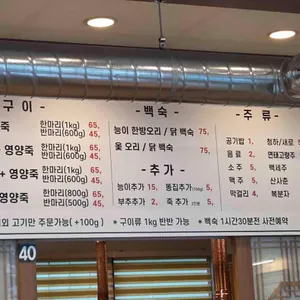 구이 -
- 백숙 -
- 주 류 -
죽 한마리(1kg) 65,
반마리(600g) 45,
+ 영양죽 한마리(1kg) 65,
반마리(600g) 45,
+ 영양죽 한마리(1kg) 65,
반마리(600g) 45,
영양죽 한마리(800g) 65,
반마리(500g) 45,
능이 한방오리 / 닭 백숙 75,
옻 오리 / 닭 백숙 75,
- 추가 -
능이추가 15, 똥집추가 15,
부추추가 2, 죽 추가 2,
공기밥 1, 청하/새로
음료 2, 연태고량주
소주 5, 백세주
맥주 5, 산사춘
막걸리 4, 복분자
외 고기만 주문가능( +100g ) * 구이류 1kg 반반 가능. * 백숙 1시간30분전 사전예약
40